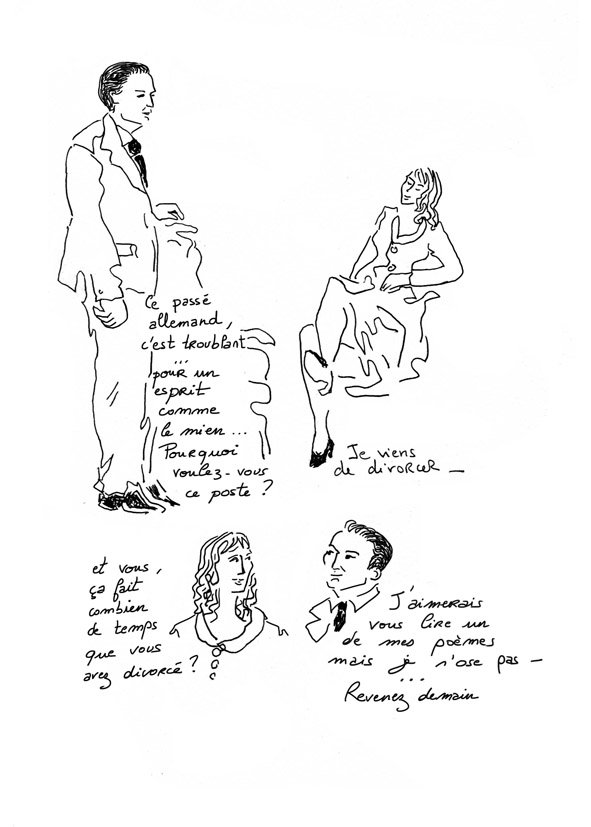 Ce passé
allemand,
c'est troublant
...
pour un
esprit
comme
le mien...
Pourquoi
voulez-vous
ce poste ?
Je viens
de divorcer _
et vous,
ça fait
combien
de temps
que vous
avez divorcé ?
J'aimerais
vous lire un
de mes poèmes
mais je n'ose pas _
...
Revenez demain